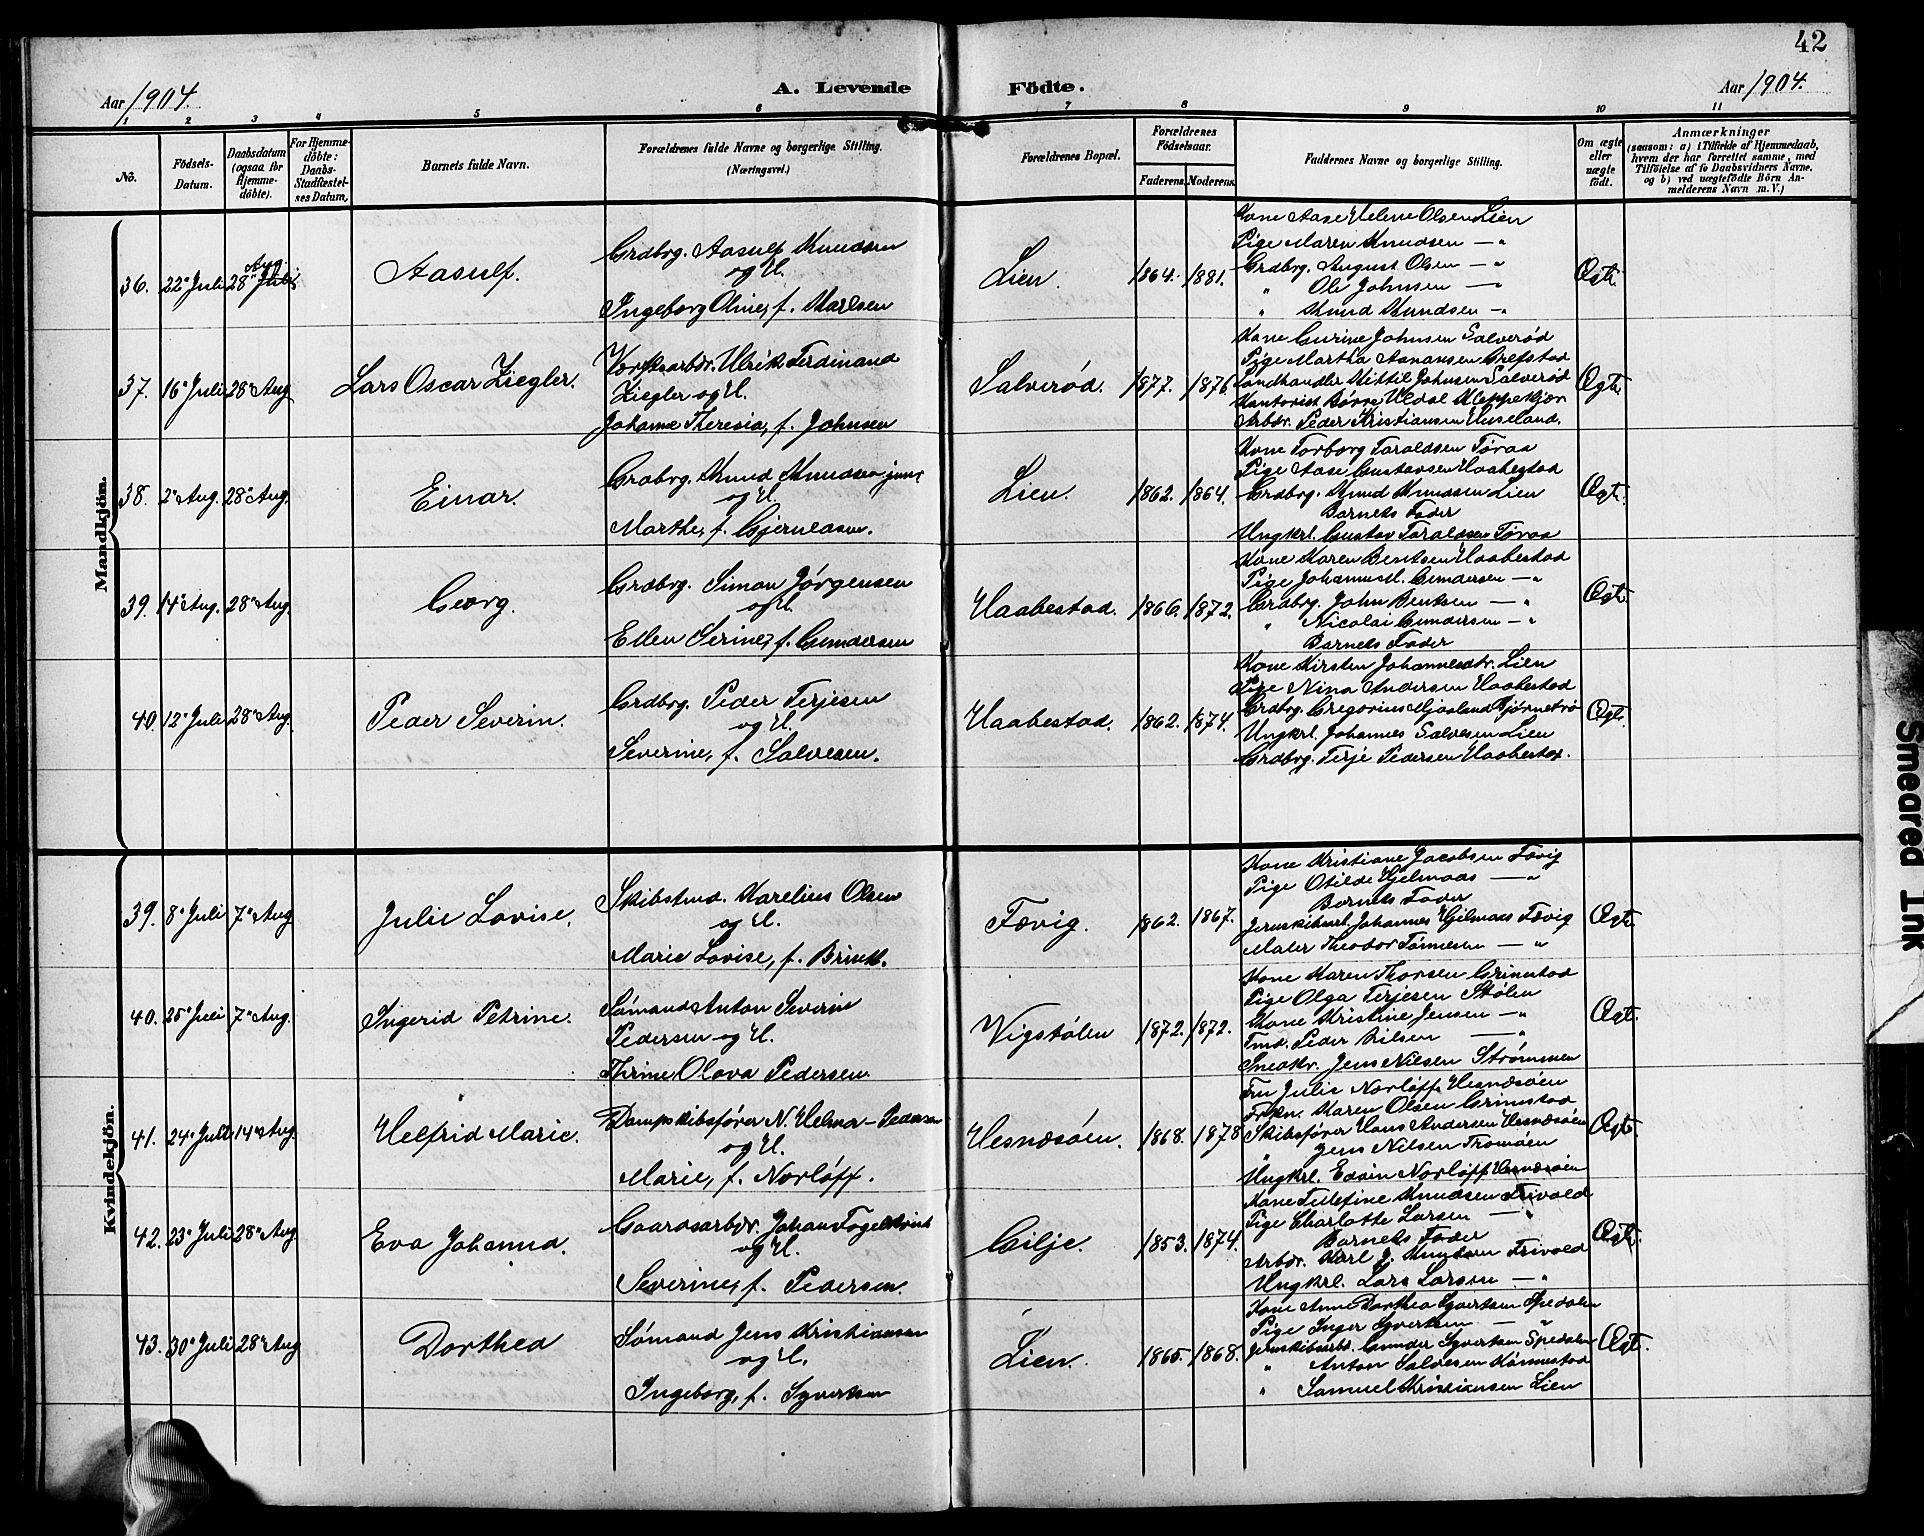 42
Aar 1904.
A. Levende Födte.
Aar 1904.
1 2 3 4 5 6 7 8 9 10 11
No.
Födsels-
Datum.
Daabsdatum
(ogsaa for
Hjemme-
döbte).
For Hjemme-
döbte:
Daabs-
Stadfæstel-
ses Datum,
Barnets fulde Navn.
Forældrenes fulde Navne og borgerlige Stilling.
(Næringsvei.)
Forældrenes Bopæl.
Forældrenes
Födselsaar.
Faderens. Moderens.
Faddernes Navne og borgerlige Stilling.
Om ægte
eller
uægte
födt.
Anmærkninger
(saasom: a) i Tilfælde af Hjemmedaab,
hvem der har forrettet samme, med
Tilföielse af to Daabsvidners Navne.
og b) ved uægtefödte Börn An-
melderens Navn m. V.)
Mandkjön.
36. 22de Juli 28de Juli Aug.
Aasulf.
Grdbrg. Aasulf Knudsen
og H.
Ingeborg Oline, f. Karlsen
Lien. 1864. 1881.
Kone Aase Helene Olsen Lien
Pige Maren Knudsen — "
Grdbrg. August Olsen — "
" Ole Johnsen — "
" Knud Knudsen — "
Ægte.
37. 16de Juli 28de Aug
Lars Oscar Ziegler.
Værftsarbdr. Ulrik Ferdinand
Ziegler og H.
Johanne Theresia, f. Johnsen
Salverød. 1877. 1876.
Kone Gurine Johnsen Salverød
Pige Martha Aanansen Grefstad
Landhandler Kittil Johnsen Salverød
Kontorist Børre Uldal Kleppekjær
Arbdr. Peder Kristiansen Huseland.
Ægte
38. 2de Aug. 28de Aug.
Einar.
Grdbrg. Knud Knudsen junr
og H.
Marthe, f. Gjerulasen.
Lien. 1862. 1864.
Kone Torborg Taraldsen Tøraa
Pige Aase Gustavsen Haabestad
Grdbrg. Knud Knudsen Lien
Barnets Fader
Ungkrl. Gustav Taraldsen Tøraa
Ægte.
39. 14de Aug. 28de Aug.
Georg.
Grdbrg. Simon Jørgensen
og H.
Ellen Serine, f. Gundersen
Haabestad. 1866. 1872.
Kone Karen Bentsen Haabestad
Pige Johanne M. Gundersen — "
Grdbrg. John Bentsen — "
" Nicolai Gundersen — "
Barnets Fader
Ægte.
40. 12de Juli 28de Aug.
Peder Severin.
Grdbrg. Peder Terjesen
og H.
Severine, f. Salvesen.
Haabestad. 1862. 1874.
Kone Kirsten Johannesdtr. Lien
Pige Nina Andersen Haabestad
Grdbrg. Gregorius Bjørnetrø
Ungkrl. Johannes Salvesen Lien
Grdbrg. Terje Pedersen Haabestad.
Ægte.
Kvindekjön.
39. 8de Juli 7de Aug
Julie Lovise.
Skibstmd. Karelius Olsen
og H.
Marie Lovise, f. Brink.
Fævig. 1862. 1867.
Kone Kristiane Jacobsen Fævig
Pige Otilde Hjelmaas — "
Barnets Fader
Jernskibsarb. Johannes Hjelmaas Fævig
Maler Theodor Tønnesen — "
Ægte.
40. 25de Juli 7de Aug.
Ingerid Petrine.
Sømand Anton Severin
Pedersen og H.
Thrine Olava Pedersen
Vigstølen 1872. 1872.
Kone Karen Thorsen Grimstad
Pige Olga Terjesen Stølen
Kone Kristine Jensen — "
Tmd. Peder Nilsen — "
Snedkr. Jens Nilsen Strømmen
Ægte.
41. 24de Juli 14de Aug.
Helfrid Marie.
Dampskibsfører N. Helmer-Pedersen
og H.
Marie, f. Norløff.
Hesnæsøen. 1868. 1878
Fru Julie Norløff Hesnæsøen
Frkn. Karen Olsen Grimstad
Skibsfører Hans Andersen Hesnæsøen
" Jens Nilsen Tromøen
Ungkrl. Edvin Norløff Hesnæsøen
Ægte
42. 23de Juli 28de Aug.
Eva Johanna.
Gaardsarbdr. Johan Fogelkvist
og H.
Severine, f. Pedersen.
Gilje. 1853. 1874.
Kone Tellefine Knudsen Frivold
Pige Charlotte Larsen — "
Barnets Fader
Arbdr. Karl J. Knudsen Frivold
Ungkrl. Lars Larsen — "
Ægte
43. 30de Juli 28de Aug
Dorthea
Sømand Jens Kristiansen
og H.
Ingeborg, f. Syvertsen
Lien. 1865. 1868.
Kone Anne Dorthea Syvertsen Spedalen
Pige Inger Syvertsen — "
Jernskibsarbd. Gunder Syvertsen Spedalen
" Anton Salvesen Rønnestad
" Samuel Kristiansen Lien
Ægte.
Smeared Ink